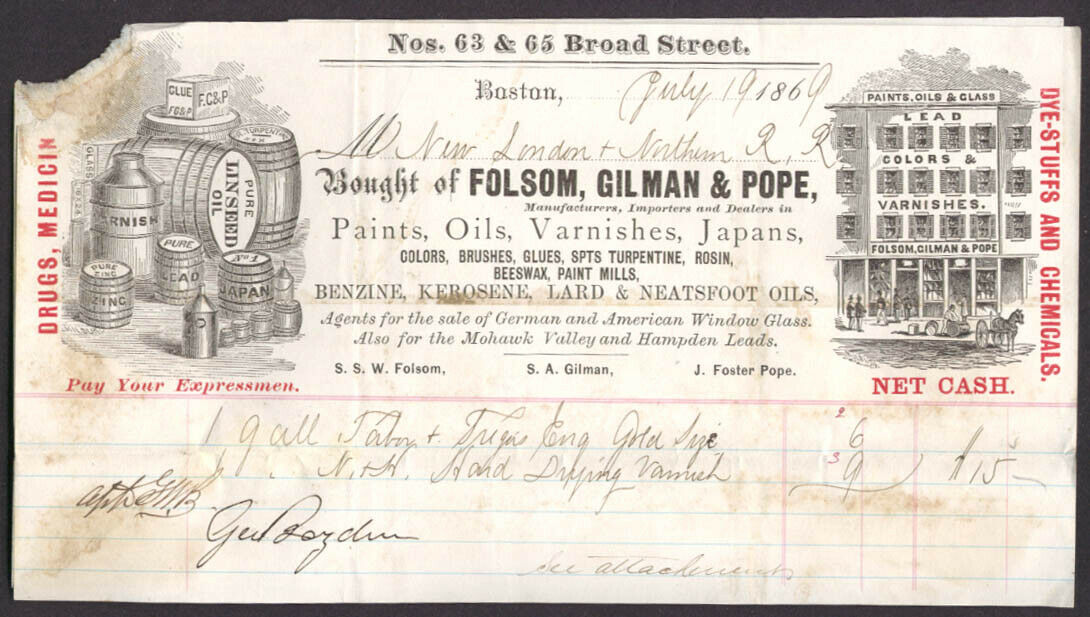 Nos. 63 & 65 Broad Street.
Boston, July 19 1869
M New London & Northern R. R.
Bought of FOLSOM, GILMAN & POPE,
Manufacturers, Importers and Dealers in
Paints, Oils, Varnishes, Japans,
COLORS, BRUSHES, GLUES, SPTS TURPENTINE, ROSIN,
BEESWAX, PAINT MILLS,
BENZINE, KEROSENE, LARD & NEATSFOOT OILS,
Agents for the sale of German and American Window Glass.
Also for the Mohawk Valley and Hampden Leads.
S. S. W. Folsom, S. A. Gilman, J. Foster Pope.
DRUGS, MEDICIN
GLUE
F.G&P
F.C&P
TURPENTINE
GLASS
PURE
LINSEED
OIL
RNISH
PURE
LEAD
PURE
ZINC
ZINC
No 1
JAPAN
Pay Your Expressmen.
PAINTS, OILS & GLASS
LEAD
COLORS &
VARNISHES.
FOLSOM, GILMAN & POPE
DYE-STUFFS AND CHEMICALS.
NET CASH.
1 gall Eng Gold Size 2 6
1 " Hard Varnish 3 9 $15
Geo
See attachment